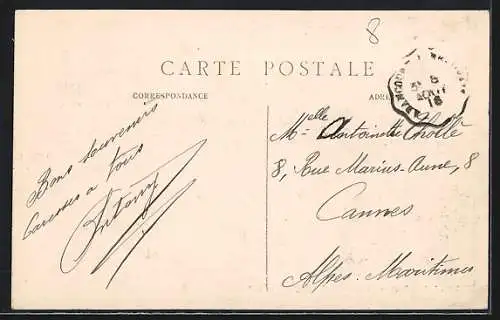 8
CARTE POSTALE
CORRESPONDANCE
ADRE
Bons souvenirs
Caresses a tous
Antony
Melle Antoinette
8, Rue Marius-Aune, 8
Cannes
Alpes-Maritimes